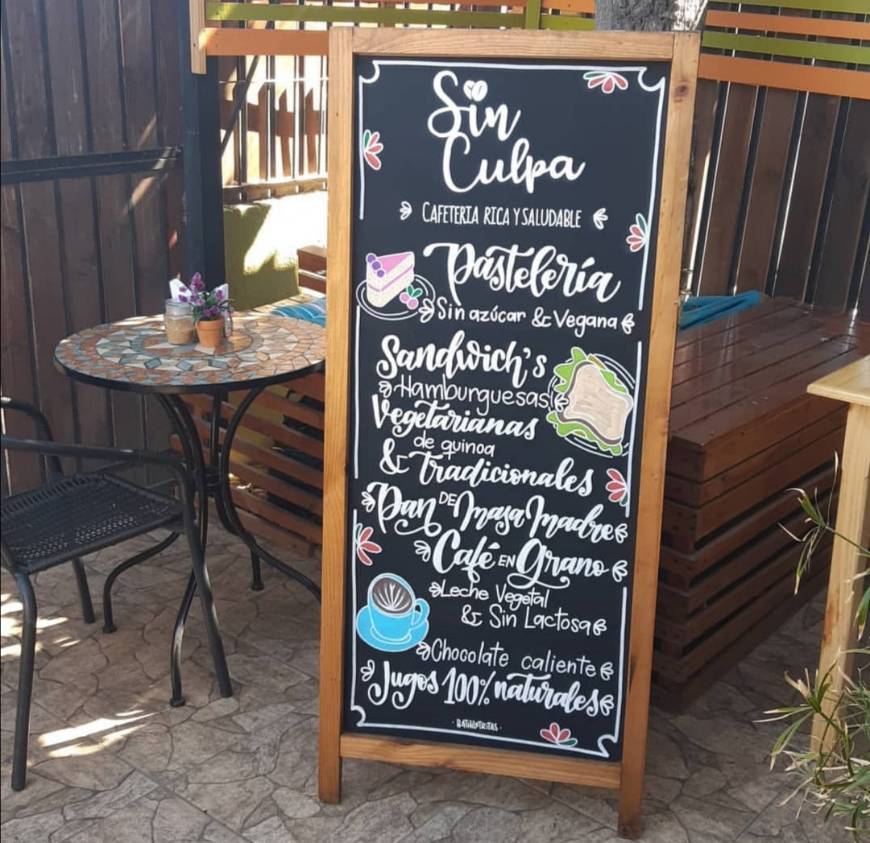 Sin
Culpa
CAFETERIA RICA Y SALUDABLE
Pastelería
Sin azúcar & Vegana
Sandwich's
Hamburguesas
Vegetarianas
de quinoa
& Tradicionales
Pan DE Masa Madre
Café EN Grano
Leche Vegetal
& Sin Lactosa
Chocolate caliente
Jugos 100% naturales